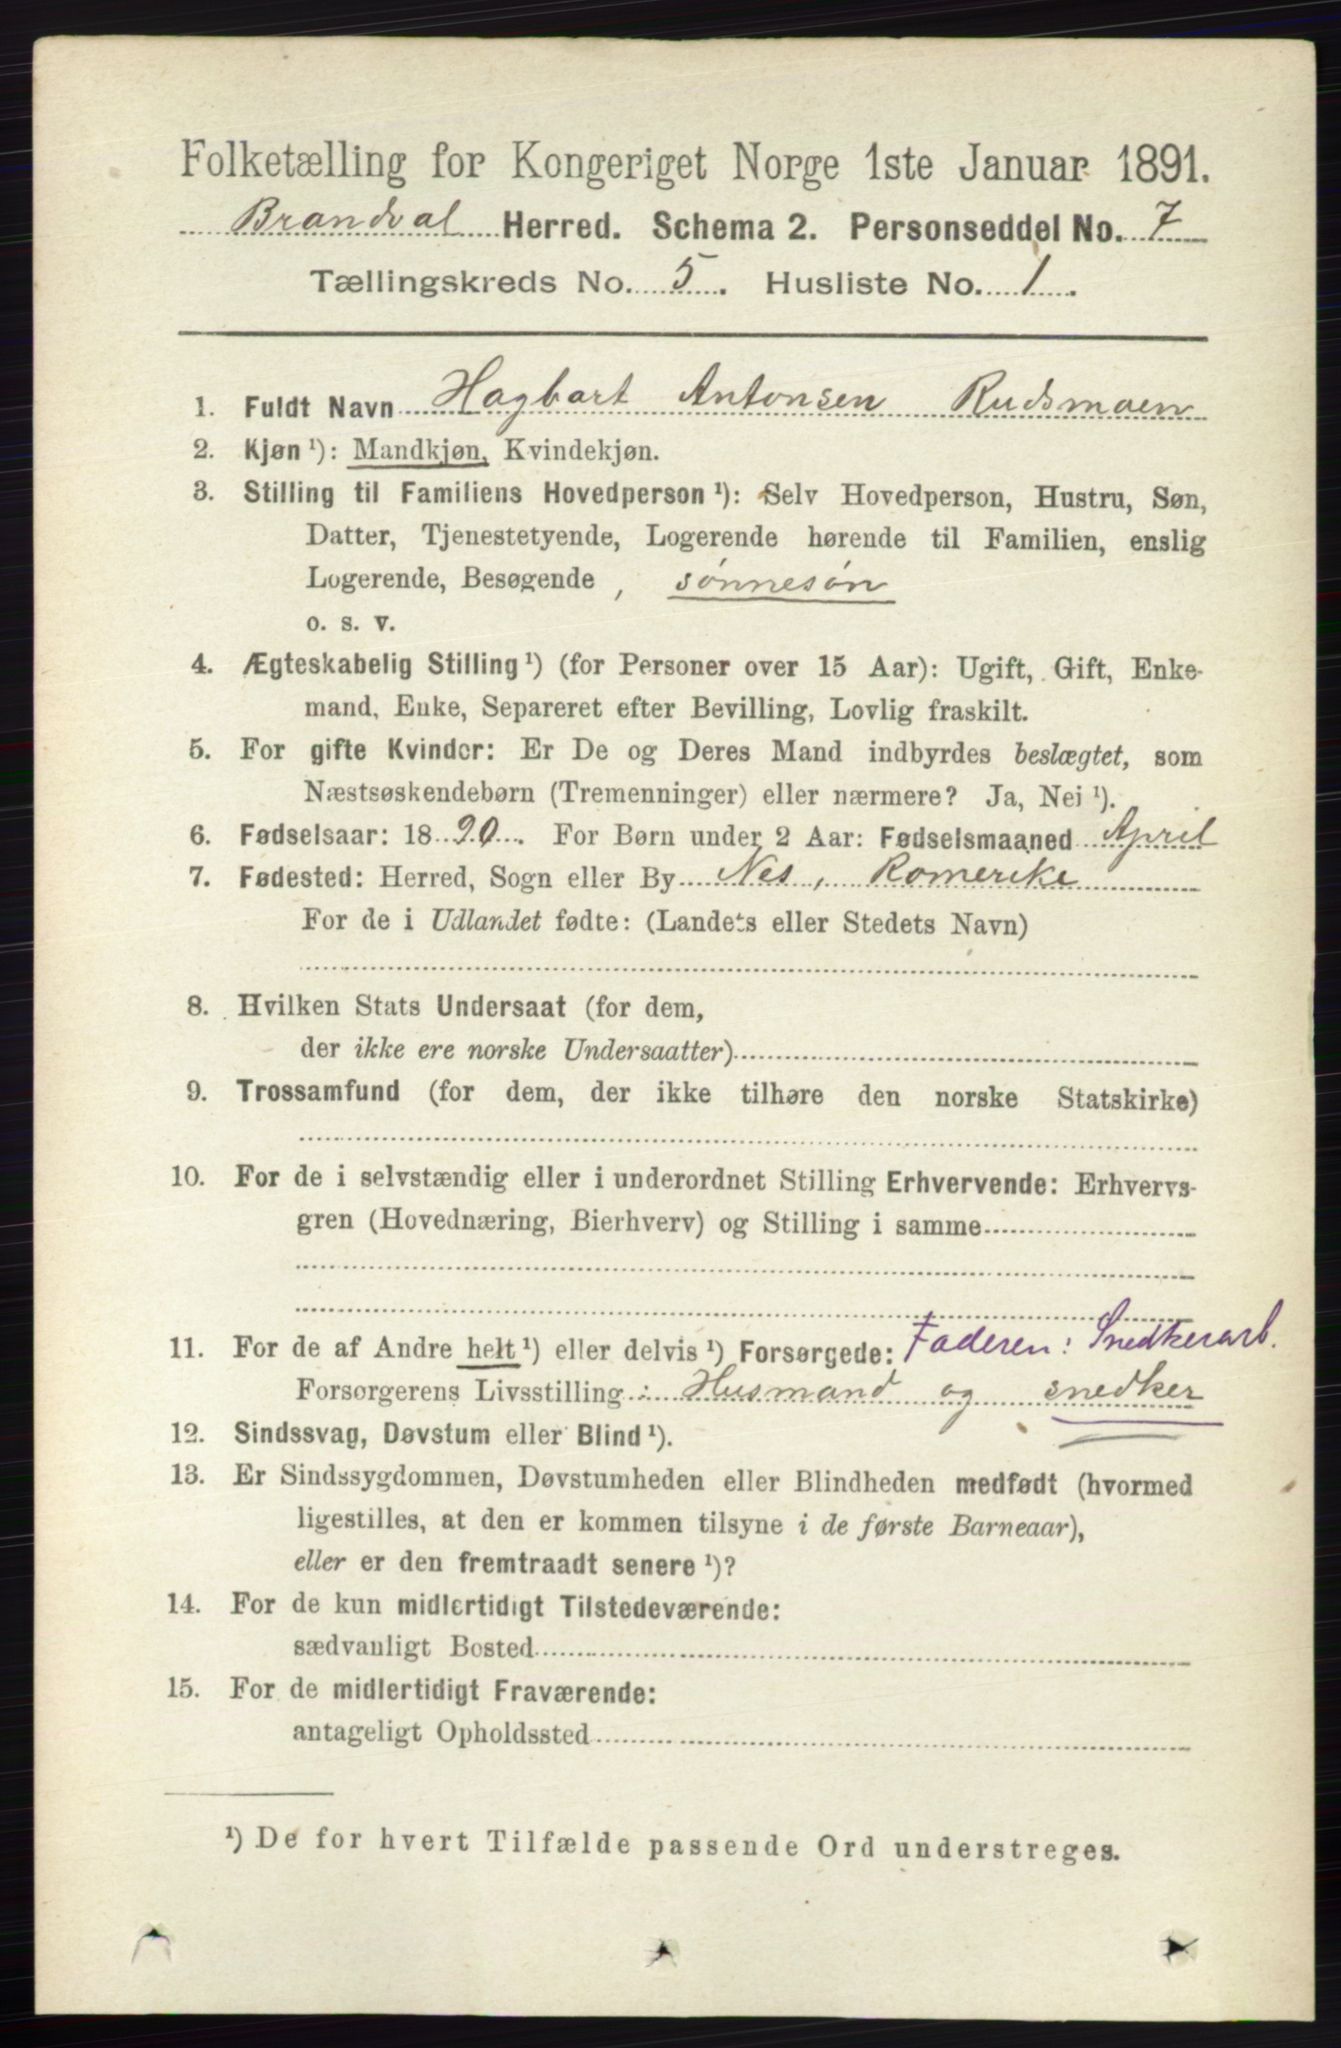 Folketælling for Kongeriget Norge 1ste Januar 1891.
Brandval Herred. Schema 2. Personseddel No. 7
Tællingskreds No. 5. Husliste No. 1.
1. Fuldt Navn Hagbart Antonsen Rudsmoen
2. Kjøn ¹): Mandkjøn, Kvindekjøn.
3. Stilling til Familiens Hovedperson ¹): Selv Hovedperson, Hustru, Søn,
Datter, Tjenestetyende, Logerende hørende til Familien, enslig
Logerende, Besøgende , sønnesøn
o. s. v.
4. Ægteskabelig Stilling ¹) (for Personer over 15 Aar): Ugift, Gift, Enke-
mand, Enke, Separeret efter Bevilling, Lovlig fraskilt.
5. For gifte Kvinder: Er De og Deres Mand indbyrdes beslægtet, som
Næstsøskendebørn (Tremenninger) eller nærmere? Ja, Nei ¹).
6. Fødselsaar: 1890. For Børn under 2 Aar: Fødselsmaaned April
7. Fødested: Herred, Sogn eller By Nes, Romerike
For de i Udlandet fødte: (Landets eller Stedets Navn)
8. Hvilken Stats Undersaat (for dem,
der ikke ere norske Undersaatter)
9. Trossamfund (for dem, der ikke tilhøre den norske Statskirke)
10. For de i selvstændig eller i underordnet Stilling Erhvervende: Erhvervs-
gren (Hovednæring, Bierhverv) og Stilling i samme
11. For de af Andre helt ¹) eller delvis ¹) Forsørgede: Faderen: Snedkerarb.
Forsørgerens Livsstilling: Husmand og snedker
12. Sindssvag, Døvstum eller Blind ¹).
13. Er Sindssygdommen, Døvstumheden eller Blindheden medfødt (hvormed
ligestilles, at den er kommen tilsyne i de første Barneaar),
eller er den fremtraadt senere ¹)?
14. For de kun midlertidigt Tilstedeværende:
sædvanligt Bosted
15. For de midlertidigt Fraværende:
antageligt Opholdssted
¹) De for hvert Tilfælde passende Ord understreges.